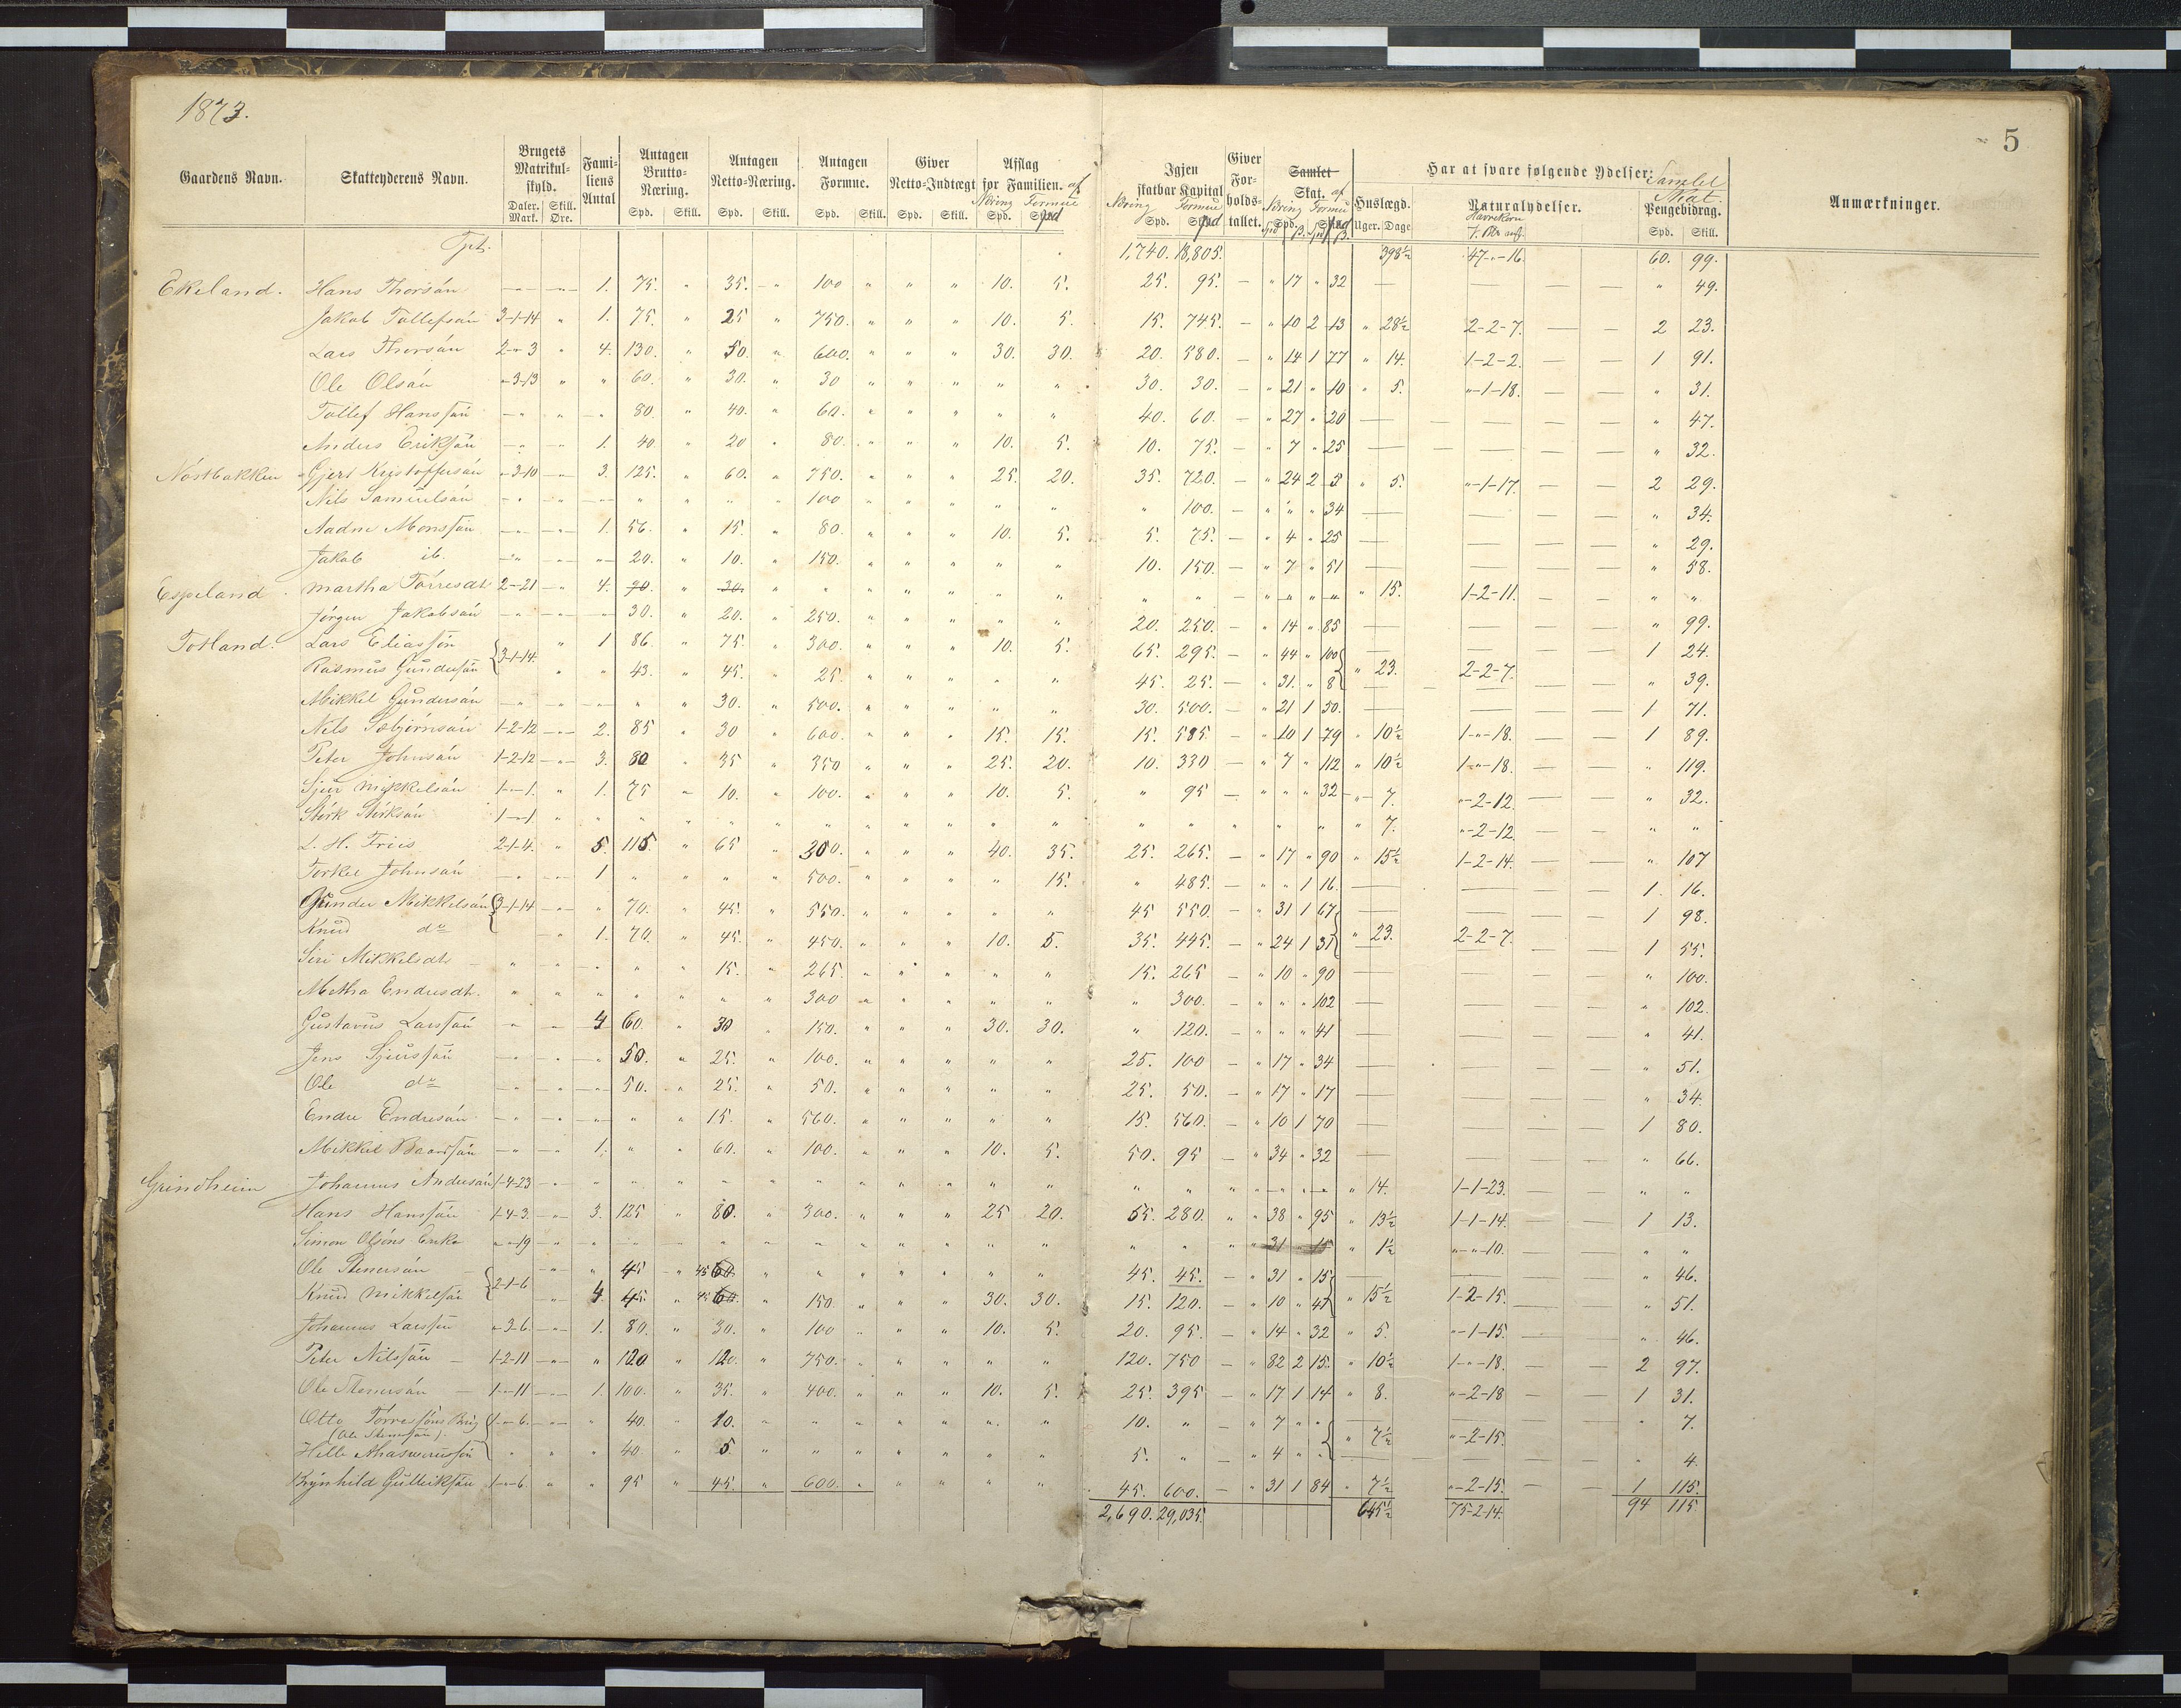 1873.
5
Gaardens Navn. Skatteyderens Navn. Brugets Matrikul-skyld. Daler. Mark. Skill. Øre. Fami-liens Antal Antagen Brutto-Næring. Spd. Skill. Antagen Netto-Næring. Spd. Skill. Antagen Formue. Spd. Skill. Giver Netto-Indtægt Spd. Skill. Afslag for Familien. af Næring Formue Spd. Spd Igjen skatbar Kapital Næring Formue Spd. Spd Giver For-holds-tallet. Samlet Skat. af Næring Formue Spd. ß. Spd ß. Har at svare følgende Ydelser: Huslægd. Uger. Dage Naturalydelser. Havrekorn Samlet Skat. Pengebidrag. Spd. Skill. Anmærkninger.
Tpt. 1,740. 18,805. 398½ 47-"-16. 60. 99.
Ekeland. Hans Thorsön — " — " — 1. 75. " 35. " 100 " " " 10. 5. 25. 95. — " 17 " 32 — — — — " 49.
Jakob Tollefsön 3-1-14 " 1. 75. " 25 " 750. " " " 10. 5. 15. 745. — " 10 2 13 " 28½ 2-2-7. — — 2 23.
Lars Thorsön 2-"-3 " 4. 130. " 50. " 600. " " " 30. 30. 20. 580. — " 14 1 77 " 14. 1-2-2. — — 1 91.
Ole Olsön "-3-13 " " 60. " 30. " 30 " " " " " 30. 30. — " 21 " 10 " 5. "-1-18. — — " 31.
Tollef Hanssön — " " — " 80. " 40. " 60. " " " " " 40. 60. — " 27 " 20 — — — — " 47.
Anders Eriksön — " — " 1. 40. " 20 " 80. " " " 10. 5. 10. 75. — " 7 " 25 — — — — " 32.
Nöstbakken Gjert Kristoffersön "-3-10 " 3. 125. " 60. " 750. " " " 25. 20. 35. 720. — " 24 2 5 " 5. "-1-17. — — 2 29.
Nils Samuelsön — " " — " " " " " 100 " " " " " " 100. — " " " 34 — — — — " 34.
Aadne Monssön — " — " 1. 56. " 15. " 80. " " " 10. 5. 5. 75. — " 4 " 25 — — — — " 29.
Jakob ib. — " — " " 20. " 10. " 150. " " " " " 10. 150. — " 7 " 51 — — — — " 58.
Espeland. Martha Törresdt 2-"-21 " 4. 70. " 30. " " " " " " " " " — " " " " " 15. 1-2-11. — — " "
Jörgen Jakobsön — " — " " 30. " 20. " 250. " " " " " 20. 250. — " 14 " 85 — — — — " 99.
Totland. Lars Eliassön 3-1-14. " 1 86. " 75. " 300. " " " 10. 5. 65. 295. — " 44 " 100 — — — 1 24.
Rasmus Gundersön " " 43. " 45. " 25. " " " " " 45. 25. — " 31. " 8 " 23. 2-2-7. — — " 39.
Mikkel Gundersön — " " — " " " 30. " 500. " " " " " 30. 500. — " 21 1 50. — — — — 1 71.
Nils Sæbjörnsön 1-2-12 " 2. 85 " 30 " 600. " " " 15. 15. 15. 585 — " 10 1 79 " 10½ 1-"-18. — — 1 89.
Peter Johnsön 1-2-12 " 3. 80 " 35 " 350 " " " 25. 20. 10. 330 — " 7 " 112 " 10½ 1-"-18. — — " 119.
Sjur Mikkelsön 1-"-1. " 1. 75 " 10. " 100. " " " 10. 5. " 95 — " " " 32 " 7. "-2-12. — — " 32.
Störk Störksön 1-"-1. " " " " " " " " " " " " " " " " " " " " 7. "-2-12. — — " "
L. H. Friis 2-1-4. " 5. 115. " 65 " 300. " " " 40. 35. 25. 265. — " 17 " 90 " 15½ 1-2-14. — — " 107
Torkel Johnsön — " — " 1 " " " " 500. " " " " 15. " 485. — " " 1 16. — — — — 1. 16.
Gunder Mikkelsön 3-1-14 " " 70. " 45. " 550. " " " " " 45 550. — " 31 1 67 — — — — 1 98.
Knud do — " 1. 70. " 45. " 450. " " " 10. 5. 35. 445. — " 24 1 31 " 23. 2-2-7. — — 1 55.
Siri Mikkelsdt — " " — " " " 15. " 265. " " " " " 15. 265 — " 10 " 90 — — — — " 100.
Metha Endresdt. " " " " " " " 300 " " " " " " 300. — " " " 102 — — — — " 102.
Gustavus Larssön " " 4 60. " 30 " 150. " " " 30. 30. " 120. — " " " 41 — — — — " 41.
Jens Sjurssön — " " — " 50. " 25. " 100. " " " " " 25. 100 — " 17 " 34 — — — — " 51.
Ole do — " " — " 50. " 25. " 50. " " " " " 25. 50. — " 17 " 17 — — — — " 34.
Endre Endresön — " " — " " " 15. " 560. " " " " " 15. 560. — " 10 1 70 — — — — 1 80.
Mikkel Baardsön — " — " 1. " " 60. " 100. " " " 10. 5. 50. 95 — " 34 " 32 — — — — " 66.
Grindheim Johannes Andersön 1-4-23 " " " " " " " " " " " " " " " " " " " " 14. 1-1-23. — — " "
Hans Hanssön 1-4-3. " 3. 125 " 80. " 300. " " " 25 20. 55. 280. " " 38 " 95 " 13½ 1-1-14. — — 1 13.
Simon Olsöns Enke "-"-19 " " " " " " " " " " " " " " " " 31 " 15 " 1½ "-"-10. — — " "
Ole Stenersön 2-1-6 " " 45 " 45 60 " " " " " " " 45. 45. — " 31 " 15 — — — — " 46.
Knud Mikkelsön " 4. 45. " 45 60. " 150. " " " 30. 30. 15. 120. — " 10 " 41 " 15½ 1-2-15. — — " 51.
Johannes Larssön "-3-6. " 1. 80. " 30. " 100 " " " 10. 5. 20. 95. — " 14 " 32 " 5. "-1-15. — — " 46.
Peter Nilssön — 1-2-11 " " 120 " 120. " 750. " " " " " 120. 750 — " 82 2 15. " 10½ 1-"-18. — — 2 97.
Ole Stenersön — 1-"-11 " 1. 100. " 35. " 400. " " " 10. 5. 25. 395 — " 17 1 14 " 8. "-2-18 — — 1 31.
Otto Törressöns Brug 1-"-6. " " 40. " 10. " " " " " " " 10. " — " 7 " " — — — — " 7.
(Ole Stenersön).
Helle Ahasverussön " " " 40. " 5. " " " " " " " 5. " — " 4 " " " 7½ "-2-15. — — " 4.
Brynhild Gulleiksön 1-"-6 " " 95 " 45. " 600. " " " " " 45. 600. — " 31 1 84. " 7½ "-2-15. — — 1 115.
2,690. 29,035. 645½ 75-2-14. 94 115.